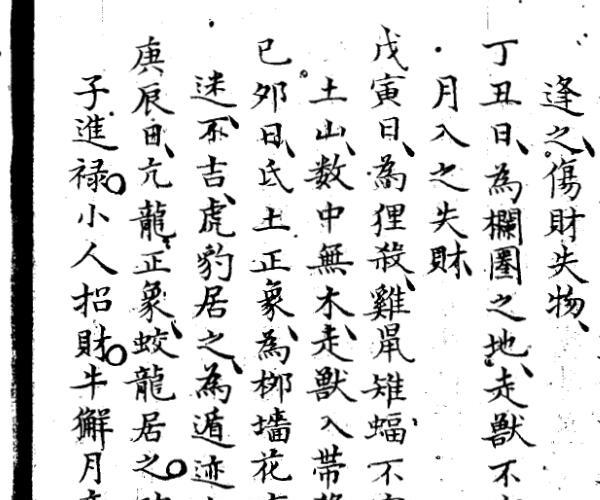 逢之、傷財失物、
丁丑日、為欄圈之地、走獸不
月入之失財、
戊寅日、為狸殺、雞鼠雉蝠不
土山、数中無木、走獸入帶
己夘日、氐土正象、為柳墻花
迷、不吉、虎豹居之、為遁迹
庚辰日、亢龍正象、蛟龍居之
子進禄小人招財牛獬月